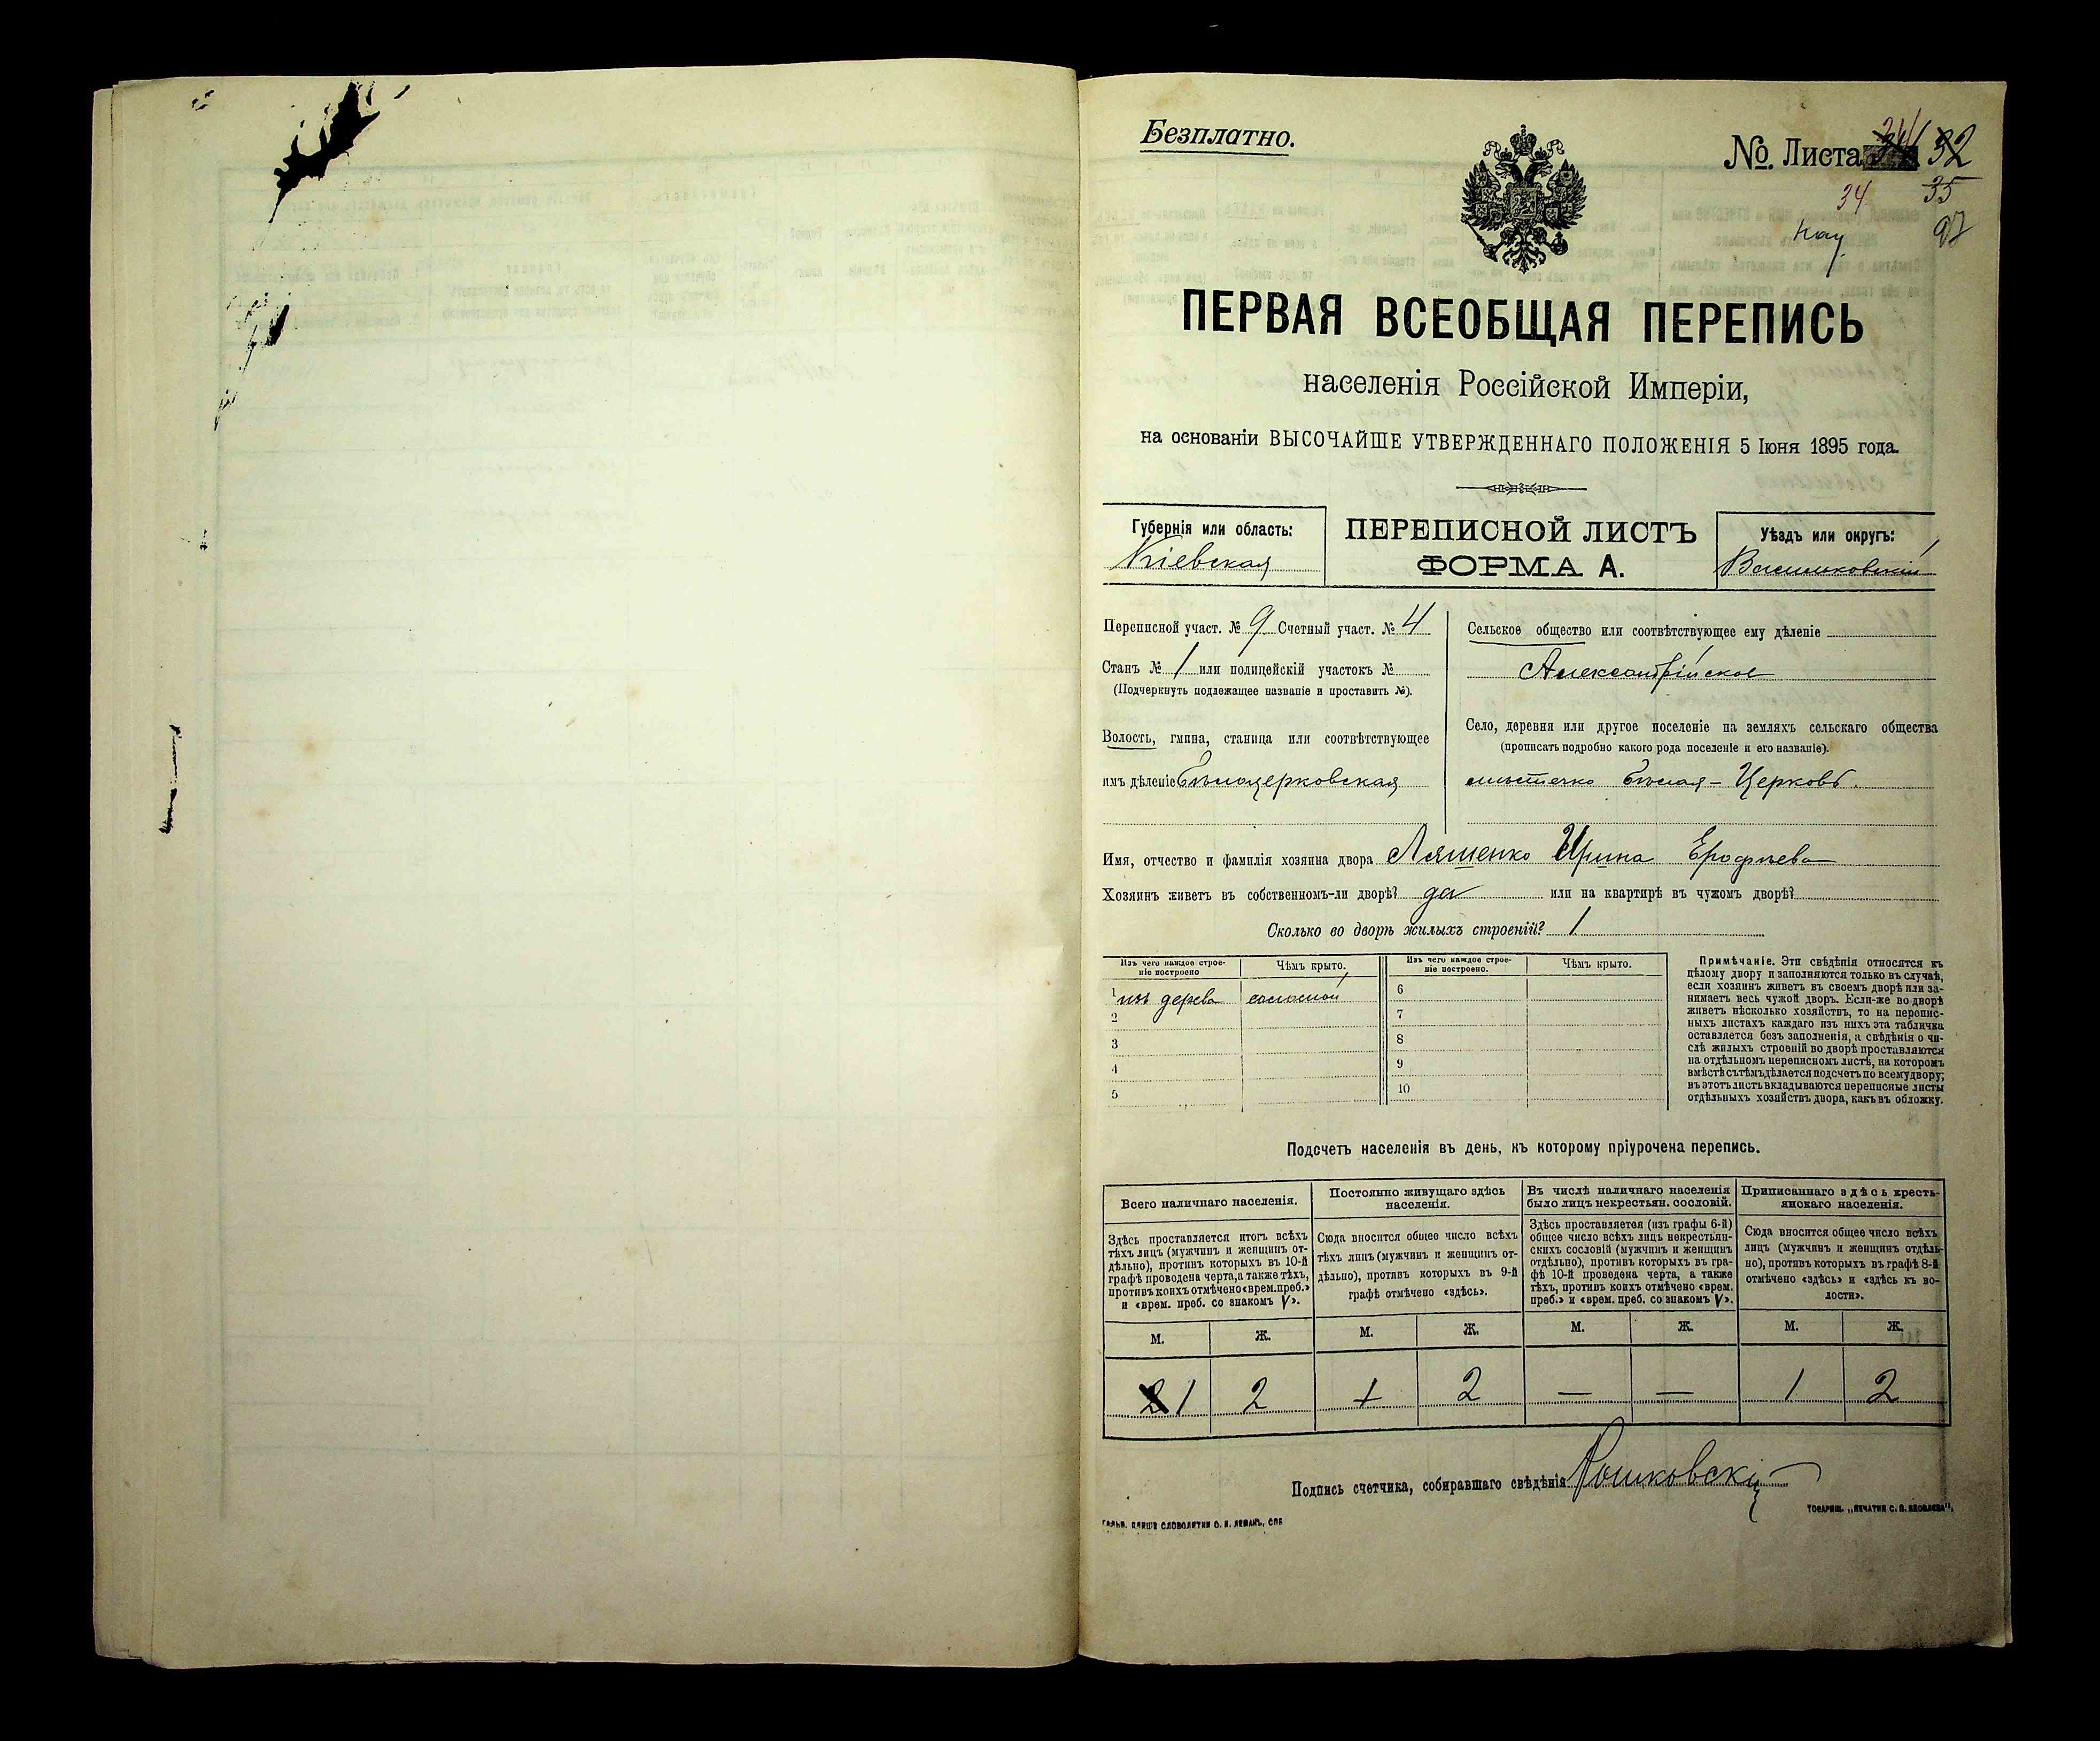 Безплатно.
№. Листа 32
34 35
97
ПЕРВАЯ ВСЕОБЩАЯ ПЕРЕПИСЬ
населенія Россійской Имперіи,
на основаніи ВЫСОЧАЙШЕ УТВЕРЖДЕННАГО ПОЛОЖЕНІЯ 5 Іюня 1895 года.
Губернія или область:
Кіевская
ПЕРЕПИСНОЙ ЛИСТЪ
ФОРМА А.
Уѣздъ или округъ:
Васильковскій
Переписной участ. № 9 Счетный участ. № 4
Станъ № 1 или полицейскій участокъ №
(Подчеркнуть подлежащее названіе и проставить №).
Волость, гмина, станица или соотвѣтствующее
имъ дѣленіе Бѣлоцерковская
Сельское общество или соотвѣтствующее ему дѣленіе
Александрійское
Село, деревня или другое поселеніе на земляхъ сельскаго общества
(прописать подробно какого рода поселеніе и его названіе).
мѣстечко Бѣлая-Церковь.
Имя, отчество и фамилія хозяина двора Ляшенко Ирина Ерофѣева
Хозяинъ живетъ въ собственномъ-ли дворѣ? да или на квартирѣ въ чужомъ дворѣ?
Сколько во дворѣ жилыхъ строеній? 1
Изъ чего каждое строе-
ніе построено
Чѣмъ крыто.
Изъ чего каждое строе-
ніе построено.
Чѣмъ крыто.
1 изъ дерева соломой 6
2 7
3 8
4 9
5 10
Примѣчаніе. Эти свѣдѣнія относятся къ
цѣлому двору и заполняются только въ случаѣ,
если хозяинъ живетъ въ своемъ дворѣ или за-
нимаетъ весь чужой дворъ. Если-же во дворѣ
живетъ нѣсколько хозяйствъ, то на перепис-
ныхъ листахъ каждаго изъ нихъ эта табличка
оставляется безъ заполненія, а свѣдѣнія о чи-
слѣ жилыхъ строеній во дворѣ проставляются
на отдѣльномъ переписномъ листѣ, на которомъ
вмѣстѣ съ тѣмъ дѣлается подсчетъ по всему двору;
въ этотъ листъ вкладываются переписные листы
отдѣльныхъ хозяйствъ двора, какъ въ обложку.
Подсчетъ населенія въ день, къ которому пріурочена перепись.
Всего наличнаго населенія.
Здѣсь проставляется итогъ всѣхъ
тѣхъ лицъ (мужчинъ и женщинъ от-
дѣльно), противъ которыхъ въ 10-й
графѣ проведена черта, а также тѣхъ,
противъ коихъ отмѣчено «врем. преб.»
и «врем. преб. со знакомъ V».
Постоянно живущаго здѣсь
населенія.
Сюда вносится общее число всѣхъ
тѣхъ лицъ (мужчинъ и женщинъ от-
дѣльно), противъ которыхъ въ 9-й
графѣ отмѣчено «здѣсь».
Въ числѣ наличнаго населенія
было лицъ некрестьян. сословій.
Здѣсь проставляется (изъ графы 6-й)
общее число всѣхъ лицъ некрестьян-
скихъ сословій (мужчинъ и женщинъ
отдѣльно), противъ которыхъ въ гра-
фѣ 10-й проведена черта, а также
тѣхъ, противъ коихъ отмѣчено «врем.
преб.» и «врем. преб. со знакомъ V».
Приписаннаго здѣсь кресть-
янскаго населенія.
Сюда вносится общее число всѣхъ
лицъ (мужчинъ и женщинъ отдѣль-
но), противъ которыхъ въ графѣ 8-й
отмѣчено «здѣсь» и «здѣсь къ во-
лости».
М. Ж. М. Ж. М. Ж. М. Ж.
2 1 2 1 2 — — 1 2
Подпись счетчика, собиравшаго свѣдѣнія
ГАЛЬВ. КЛИШЕ СЛОВОЛИТНИ О. И. ЛЕМАНЪ, СПБ
ТОВАРИЩ. „ПЕЧАТНЯ С. П. ЯКОВЛЕВА".